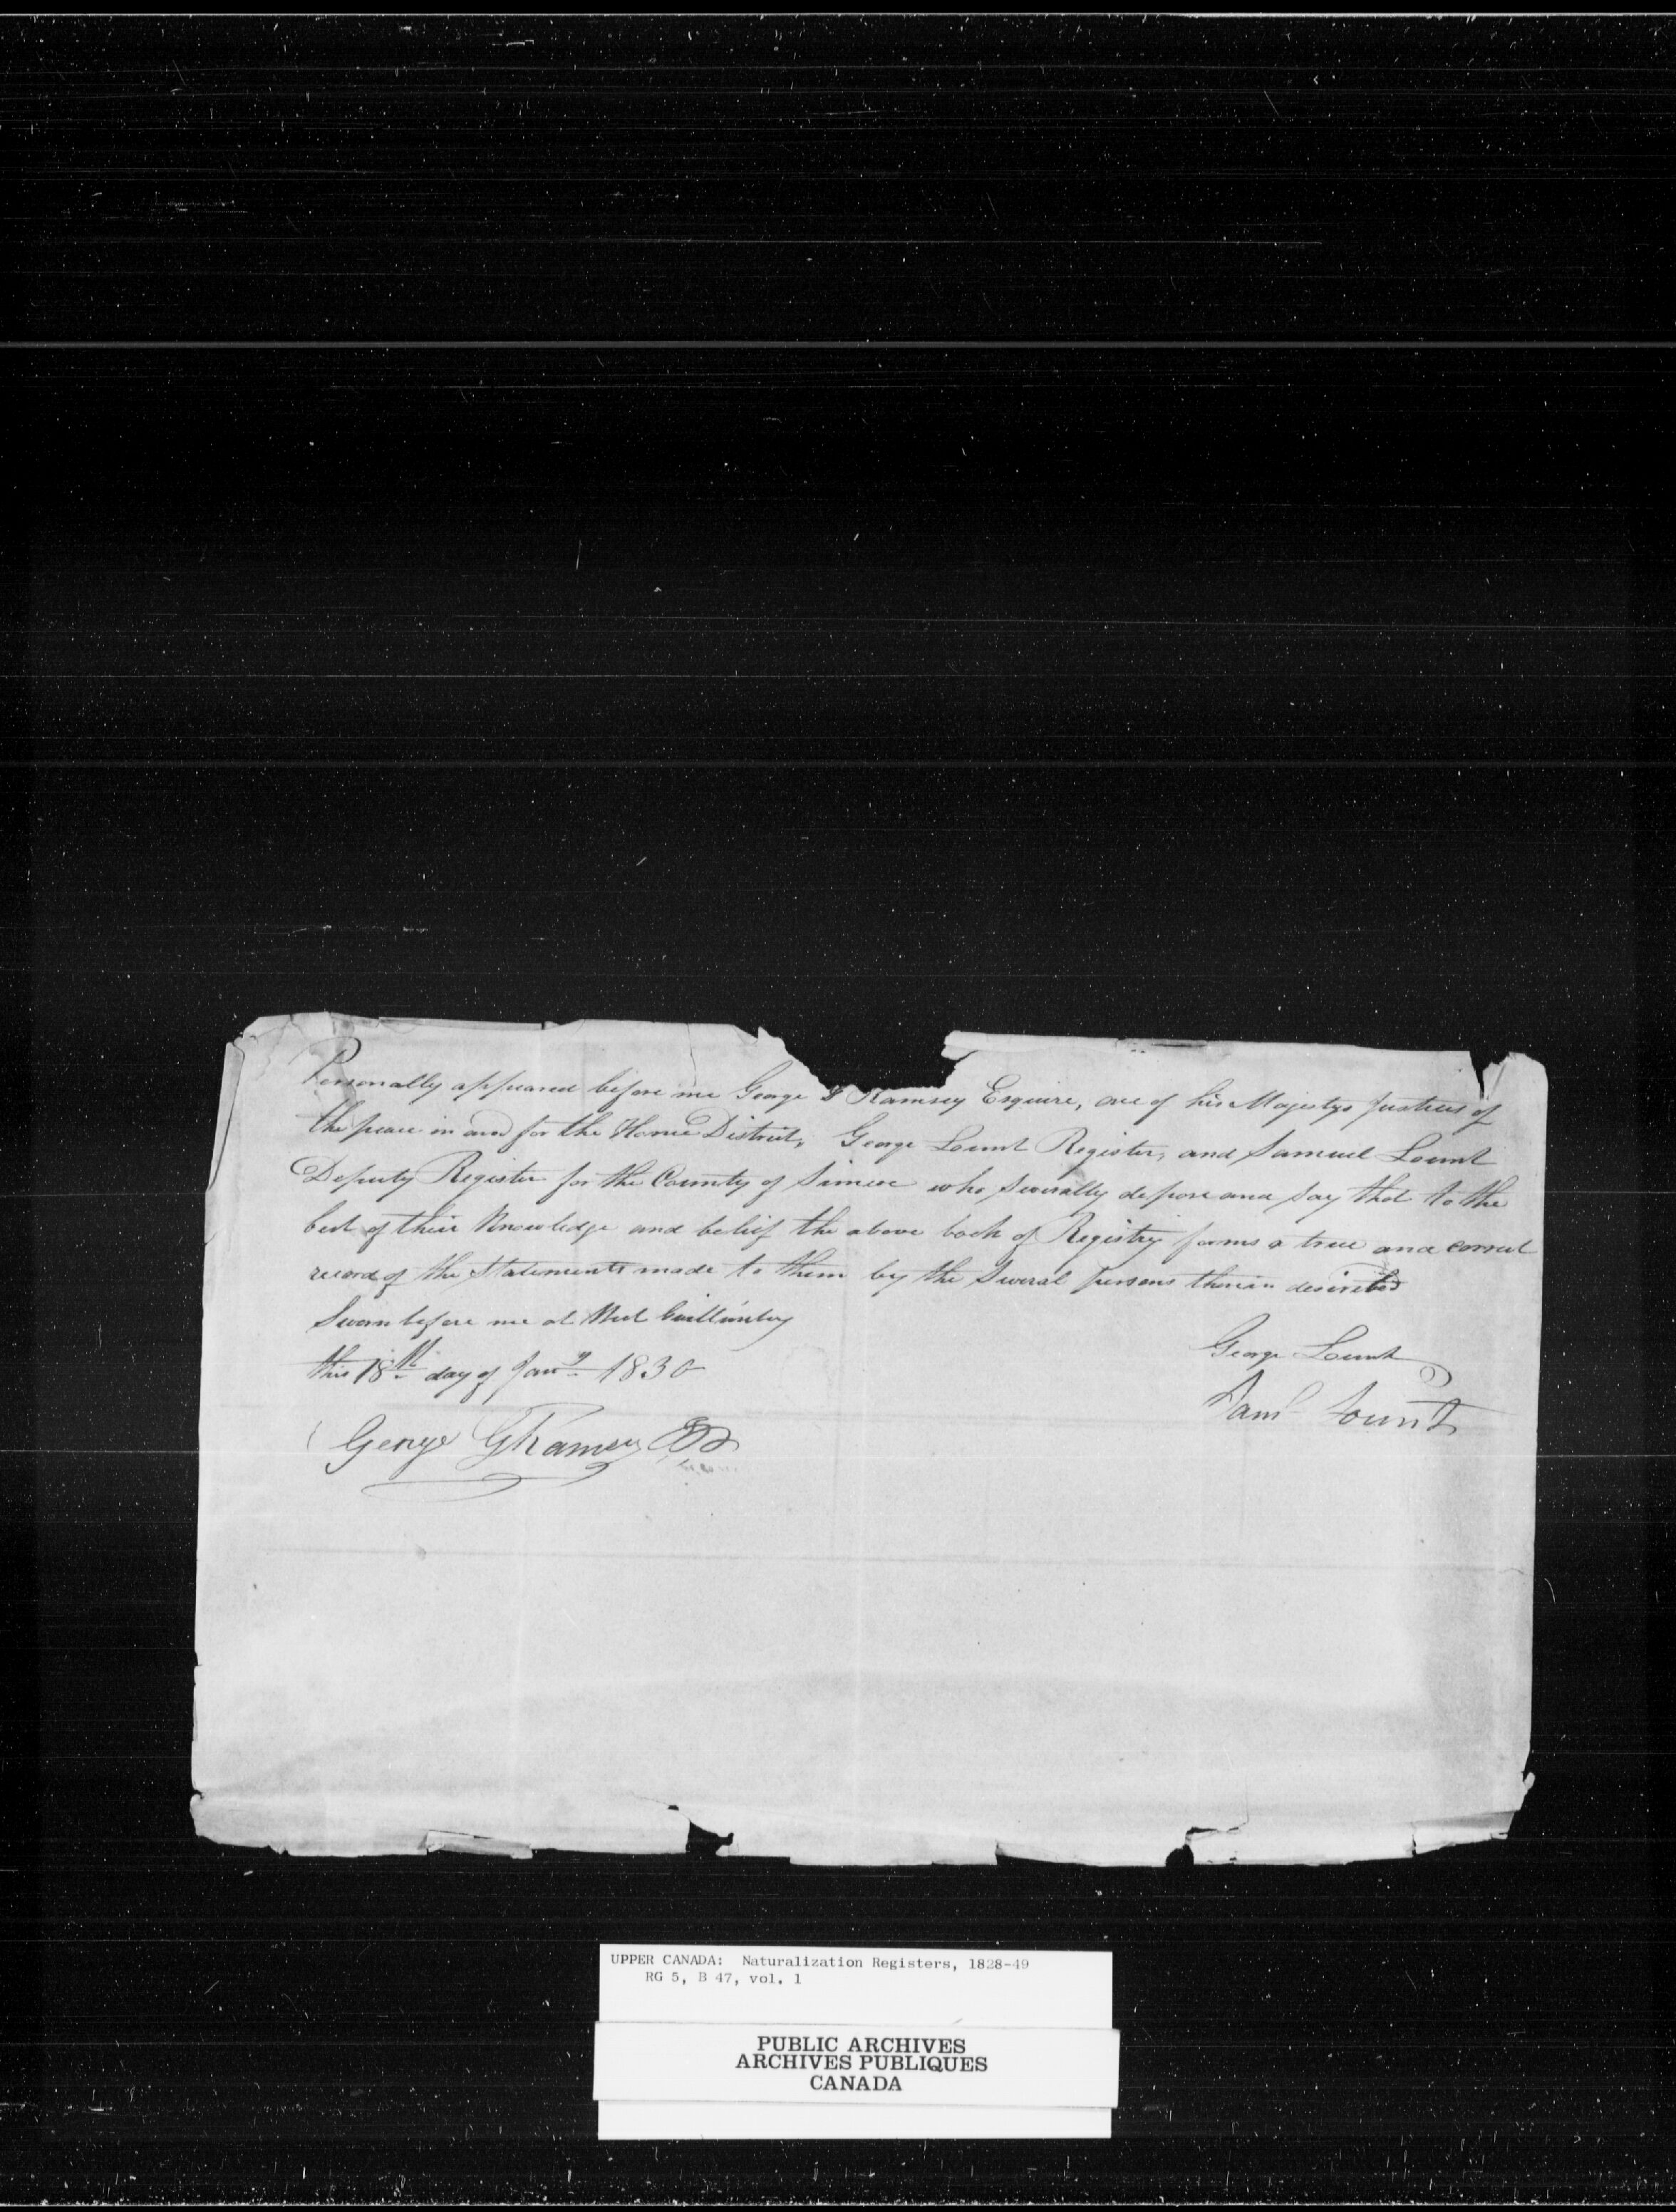 Personally appeared before me George G Ramsey Esquire, one of his Majestys Justices of
the peace in and for the Home District, George Lount Register, and Samuel Lount
Deputy Register for the County of Simcoe who severally depose and say that to the
best of their Knowledge and belief the above book of Registry forms a true and correct
record of the Statements made to them by the Several persons therein described
Sworn before me at West Guillimbury
this 18th day of Jany 1830
George Lount
Saml Lount
George G Ramsey
UPPER CANADA: Naturalization Registers, 1828-49
RG 5, B 47, vol. 1
PUBLIC ARCHIVES
ARCHIVES PUBLIQUES
CANADA